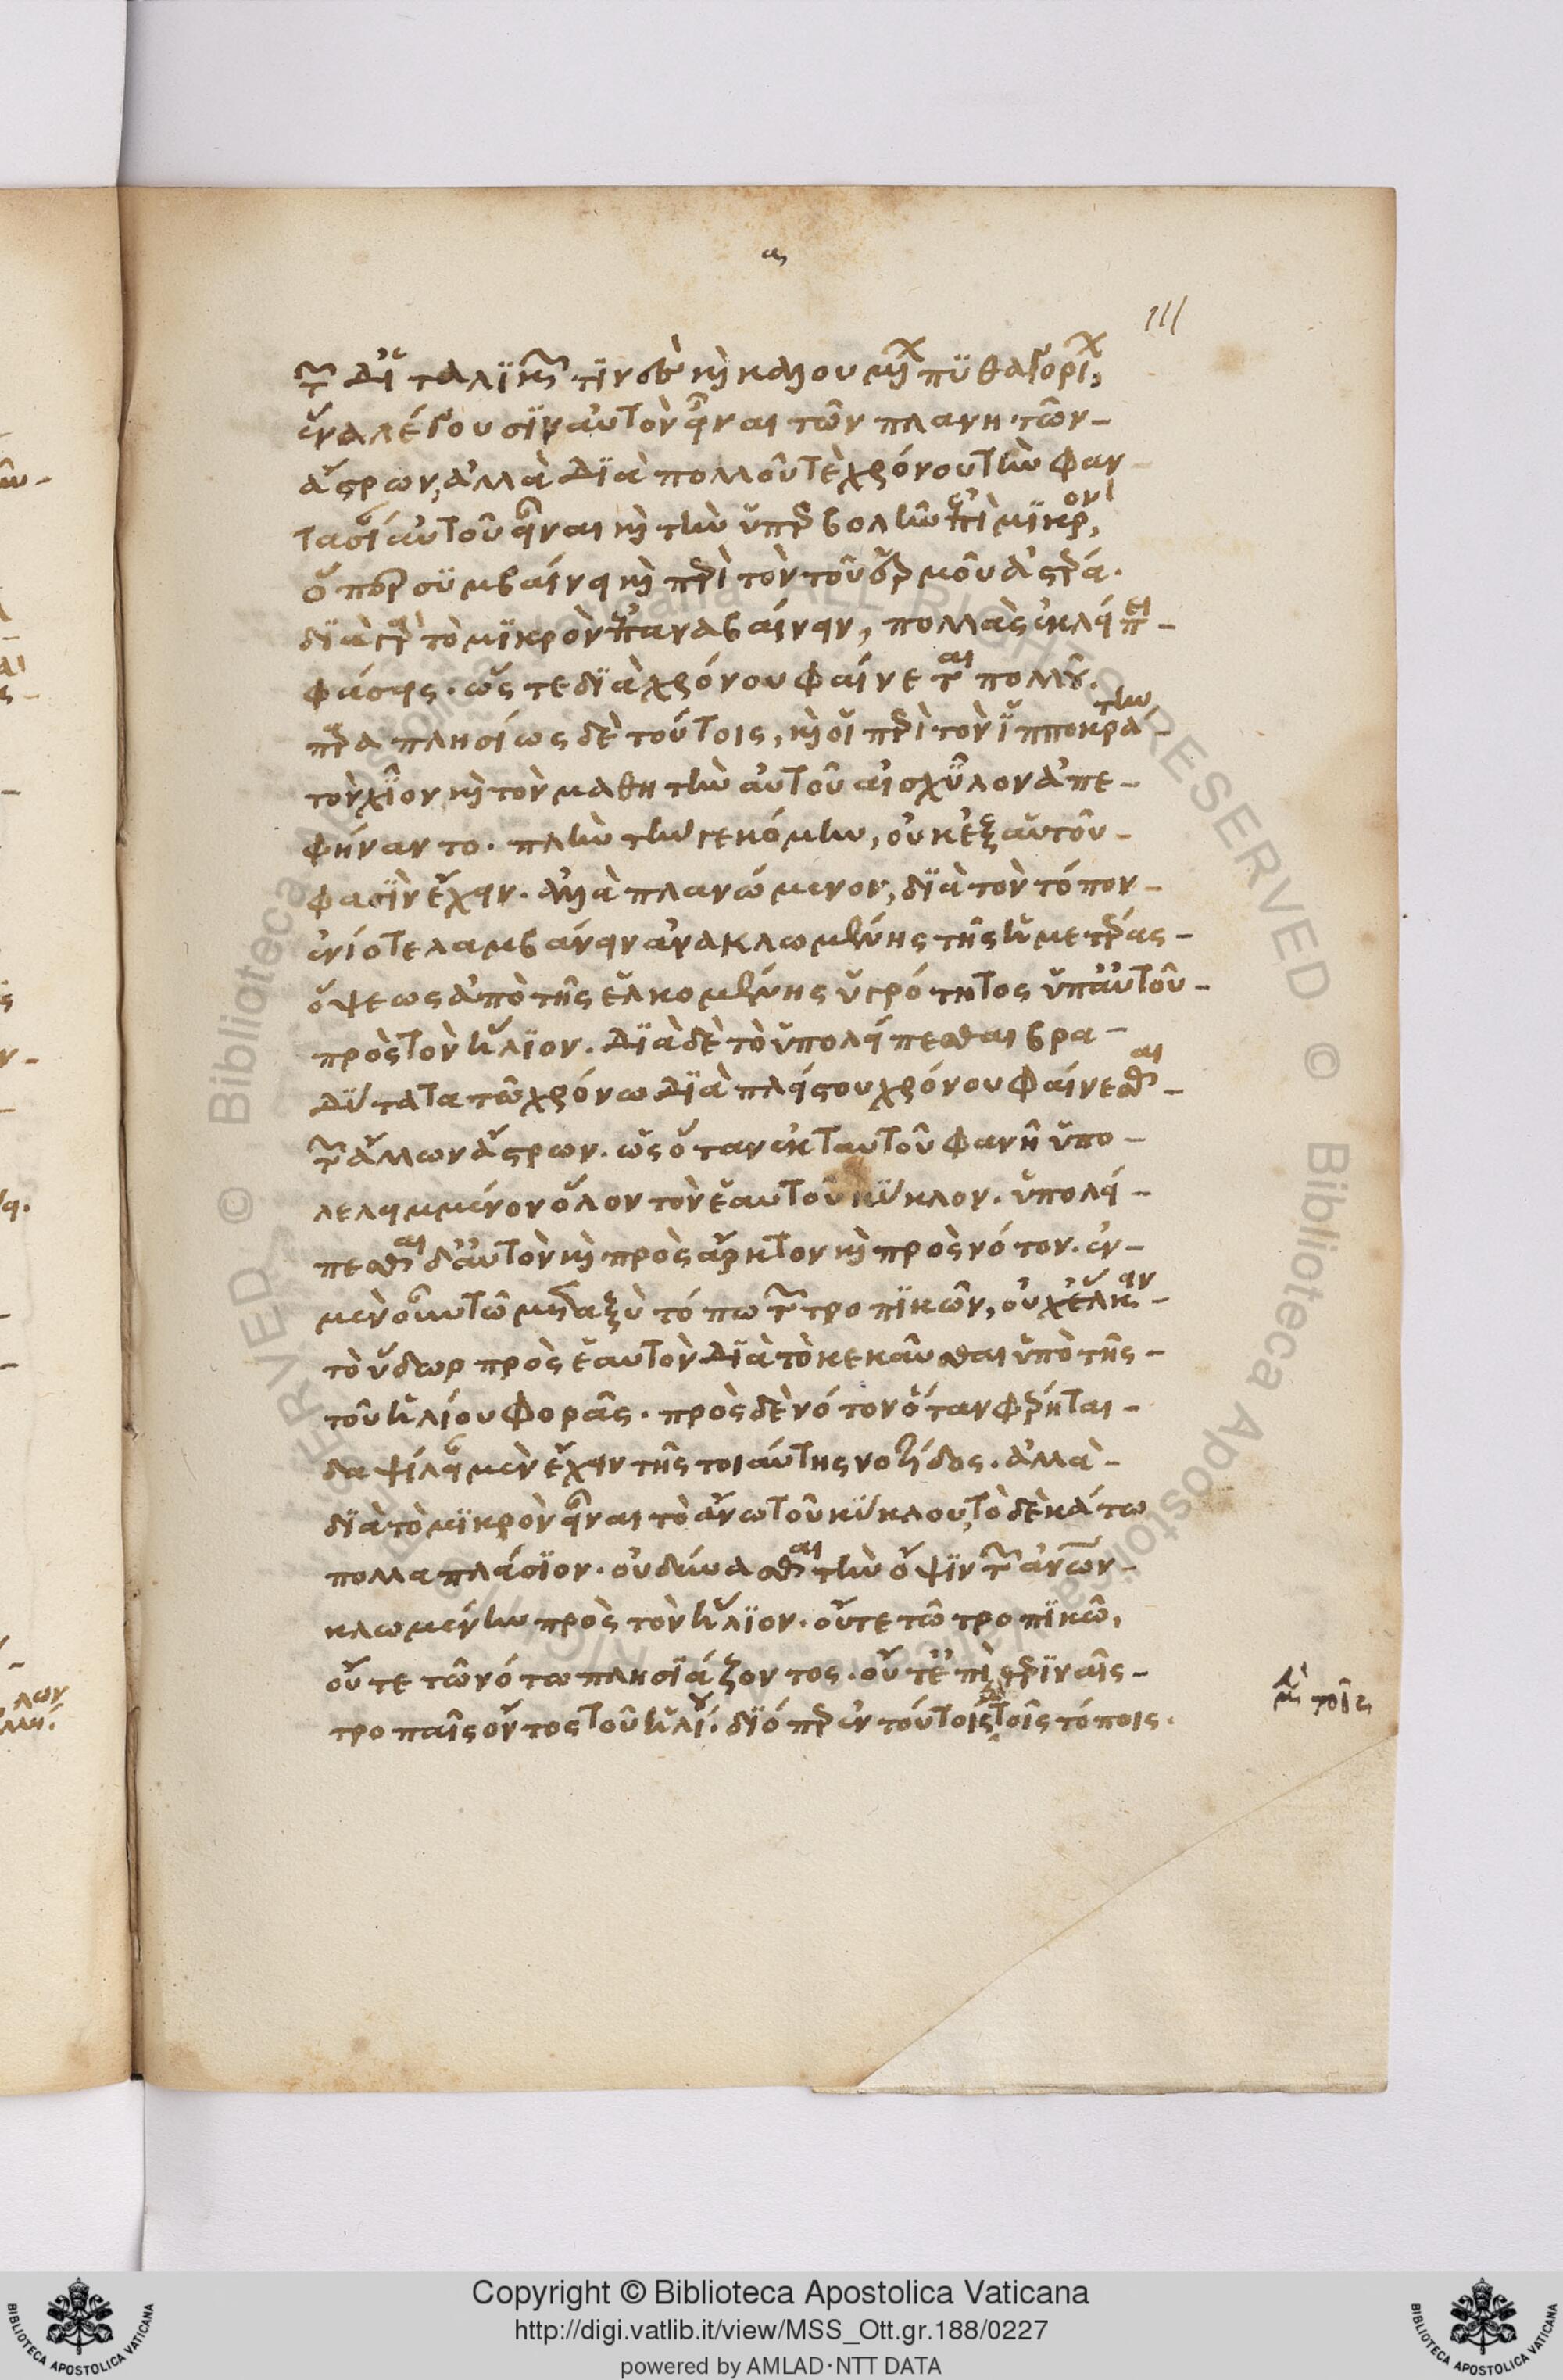 α
111
τῶν δ' ἰταλϊκῶν τϊνὲς καὶ καλουμένων πϋθαγορείων,
ἕνα λέγουσϊν αὐτὸν εἶναι τῶν πλανητῶν-
ἄστρων, ἀλλὰ δϊὰ πολλοῦ τὲ χρόνου τὴν φαν-
τασίαν αὐτοῦ εἶναι καὶ τὴν ὑπερβολὴν ἐπὶ μϊκρόν,
ὅπερ συμβαίνει καὶ περὶ τὸν τοῦ ἑρμοῦ ἀστέρα.
δϊὰ γὰρ τὸ μϊκρὸν ἐπαναβαίνειν, πολλὰς ἐκλείπει-
φάσεις. ὥστε δϊὰ χρόνου φαίνεται πολλοῦ.
παραπλησίως δὲ τούτοις, καὶ οἱ περὶ τὸν ἱπποκράτην-
τὸν χῖον καὶ τὸν μαθητὴν αὐτοῦ αἰσχῦλον ἀπε-
φήναντο. πλὴν τὴν γε κόμην, οὐκ ἐξ αὑτοῦ-
φασὶν ἔχειν. ἀλλὰ πλανώμενον, δϊὰ τὸν τόπον-
ἐνίοτε λαμβάνειν ἀνακλωμένης τῆς ἡμετέρας-
ὄψεως ἀπὸ τῆς ἑλκομένης ὑγρότητος ὑπ' αὐτοῦ-
πρὸς τὸν ἥλϊον. δϊὰ δὲ τὸ ὑπολείπεσθαι βρα-
δύτατα τῶ χρόνω δϊὰ πλείστου χρόνου φαίνεσθαι-
τῶν ἄλλων ἄστρων. ὡς ὅταν ἐκ ταυτοῦ φανῆ ὑπο-
λελειμμένον ὅλον τὸν ἑαυτοῦ κύκλον. ὑπολεί-
πεσθαι δ' αὐτὸν καὶ πρὸς ἄρκτον καὶ πρὸς νότον. ἐν-
μὲν οὖν τῶ μεταξὺ τόπω τῶν τροπϊκῶν, οὐχ ἕλκειν-
τὸ ὕδωρ πρὸς ἑαυτὸν δϊὰ τὸ κεκαῦσθαι ὑπὸ τῆς-
τοῦ ἡλίου φορᾶς. πρὸς δὲ νότον ὅταν φέρηται-
δαψίλειαν μὲν ἔχειν τῆς τοιαύτης νοτίδος. ἀλλὰ-
δϊὰ τὸ μϊκρὸν εἶναι τὸ ἄνω τοῦ κύκλου, τὸ δὲ κάτω
πολλαπλάσϊον. οὐ δύνασθαι τὴν ὄψϊν τῶν ἀνθρώπων-
κλωμένην πρὸς τὸν ἥλϊον. οὔτε τῶ τροπϊκῶ,
οὔτε τῶ νότω πλησϊάζοντος. οὔτ' ἐπὶ θερϊναῖς-
τροπαῖς ὄντος τοῦ ἡλίου. δϊόπερ ἐν τούτοις τοῖς τόποις.
μὲν τοῖς